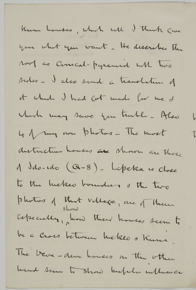 Kuni houses, which will I think give
you what you want. He describes the
roof as conical-pyramid with two
sides. I also send a translation of
it which I had got made for me &
which may save you trouble. Also
of my own photos. The most
distinctive houses are shown are those
of Ido-ido (Q-8). Lopeka is close
to the Mekeo boundary & the two
photos of that village, one of them
especially, show how these houses seem to
be a cross between Mekeo & Kuni.
The Deva-deva houses on the other
hand seem to show Mafulu influence